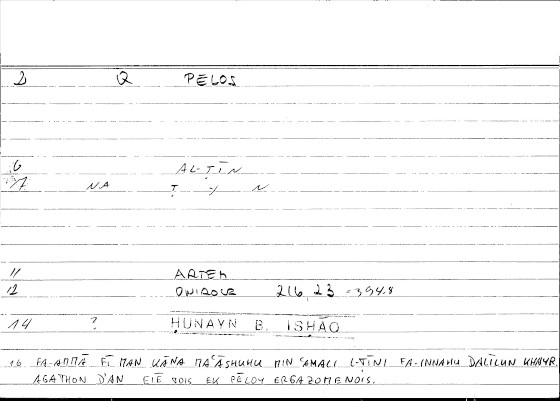 2 Q PĒLOS
6 AL-ṬĪN
7 NA Ṭ Y N
11 ARTEM
12 ONIROCR 216, 23 = 394.8
14 ? ḤUNAYN B. ISHĀQ
16 FA-AMMĀ FĪ MAN KĀNA MAʿĀSHUHU MIN ʿAMALI L-ṬĪNI FA-INNAHU DALĪLUN KHAYR
AGATHON D'AN EIĒ TOIS EK PĒLOY ERGAZOMENOIS.